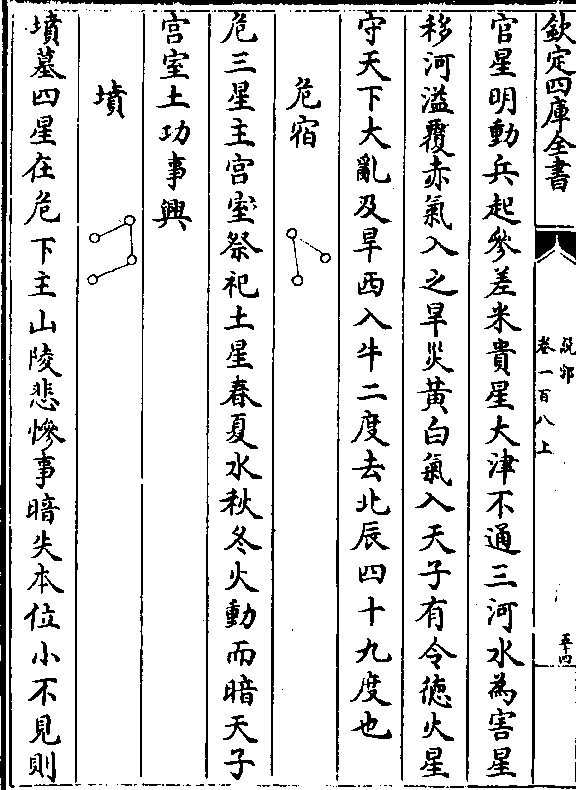 欽定四庫全書
說郛
卷一百八上
五十四
官星明動兵起參差米貴星大津不通三河水為害星
移河溢覆赤氣入之旱災黃白氣入天子有令徳火星
守天下大亂及旱西入牛二度去北辰四十九度也
危宿
危三星主宫室祭祀土星春夏水秋冬火動而暗天子
宫室土功事興
墳
墳墓四星在危下主山陵悲慘事暗失本位小不見則